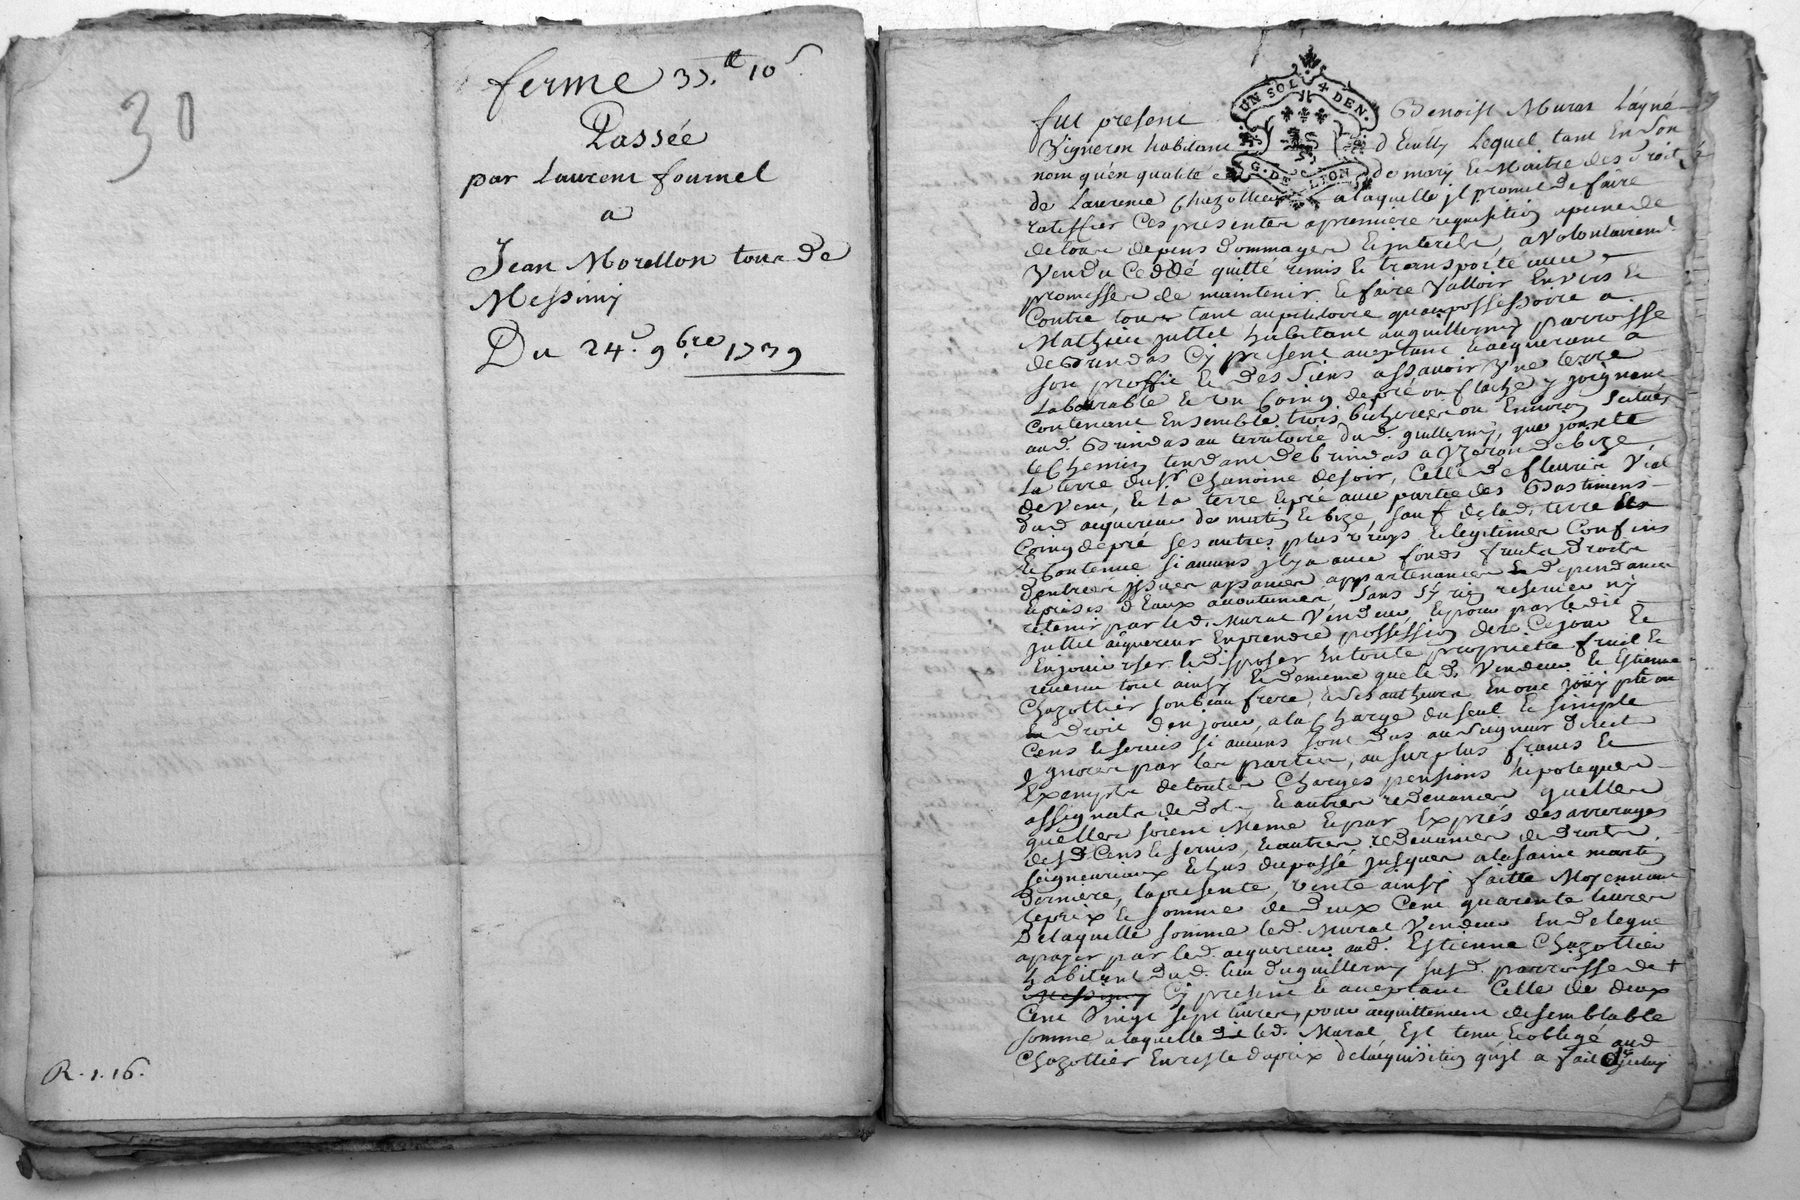 30
ferme 35.tt 10s.
Passée
par Laurent fournel
a
Jean Morellon tous de
Messimy
Du 24e. 9bre. 1739
R. 1. 16.
UN SOL DEN.
G. DE LYON
fut present Benoist Murat L'ayné
Vigneron habitant d'Eculy Lequel tant En Son
nom qu'en qualité de mary Et Maitre des droits
de Laurence Chazottier a laquelle jl promet de faire
ratiffier Ces presentes a premiere requisition a peine de
de tous depens dommages Et jnterests, a Volontairemt.
Vendu Ceddé quitté remis Et transporté avec
promesse de maintenir Et faire Valloir Envers Et
Contre tous tant au petitoire qu'au possessoire a
Mathieu juttet habitant au guillermy parroisse
de Brindas Cy present acceptant Et acquerant a
Son proffit Et des Siens assavoir Vne terre
Labourable Et vn Coing de pré ou flache y joignant
Contenant Ensemble trois bicherées ou Environ Scitués
aud. Brindas au territoire dud. guillermy, que jouxte
le Chemin tendant de brindas a Yzeron de bize
La terre du Sr. Chanoine de soir, Celle de fleurie Vial
de Vent, Et La terre Et pré avec partie des Bastimens
dud. acquereur de matin Et bize, Sauf de lad. terre Et
Coing de pré ses autres plus vrays Et legitimes Confins
Et Contenue si aucuns jl y a avec fonds fruits droits
d'entrées jssues aysances appartenances Et dependances
Et prises d'Eaux accoutumées, Sans S'y rien reserver ny
retenir par led. Murat Vendeur, Et pour par ledit
juttet acquereur En prendre possession dez Ce jour Et
En jouir vser Et disposer En toute proprieté fruit Et
revenu tout ainsy Et de meme que led. Vendeur Et Estienne
Chazottier son beau frere, Et Ses autheurs En ont jouy pû ou
du droit d'en jouir, a la Charge du seul Et simple
Cens Et servis si aucuns sont dus au Seigneur direct
jgnorés par les parties, au surplus francs Et
Exempts de toutes Charges pensions hipoteques
assignats de dot, Et autres redevances quelles
quelles soient Meme Et par Exprés des arrerages
desd. Cens Et servis, Et autres redevances Et droits
seigneuriaux Echus du passé jusques a la saint martin
derniere, la presente, vente ainsy faitte Moyennant
le prix Et somme de deux Cent quarente livres
De laquelle somme led. Murat Vendeur En delegue
a payer par led. acquereur aud. Estienne Chazottier
habitant dud. lieu du guillermy susd. parroisse de +
Messimy Cy present Et acceptant Celle de deux
Cent Vingt sept livres pour acquittement de semblable
somme a laquelle led. Murat Est tenu Et obligé aud.
Chazottier En reste du prix de l'acquisition qu'jl a fait de luy